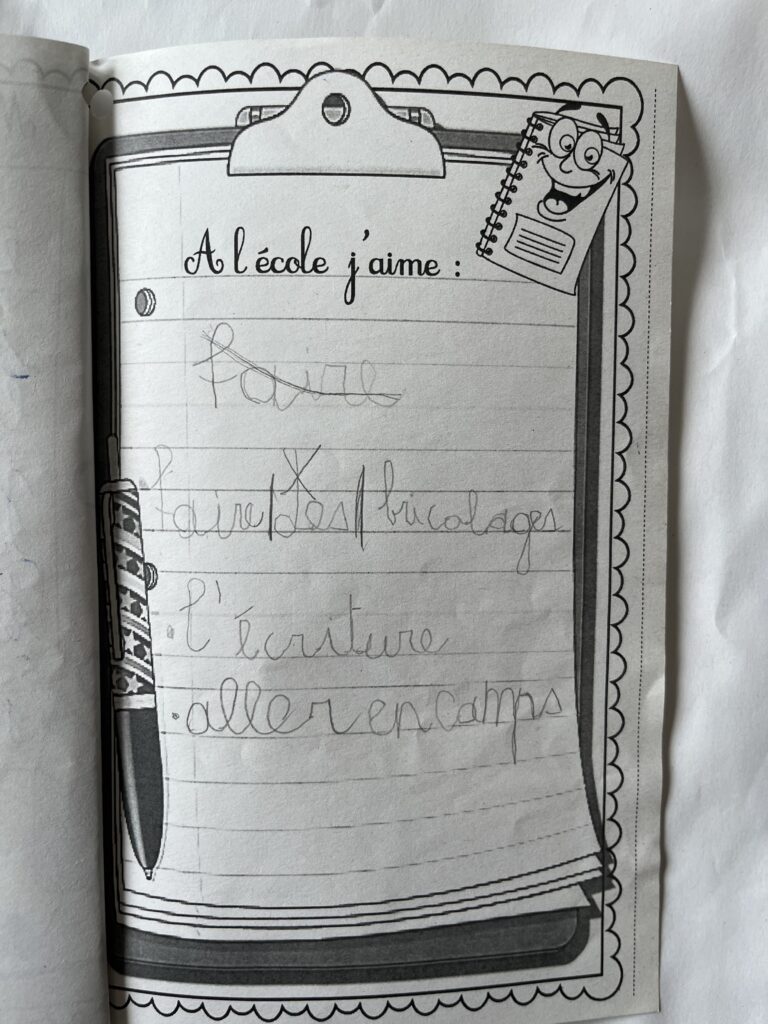 A l'école j'aime :
faire
faire des bricolages
l'écriture
aller en camps